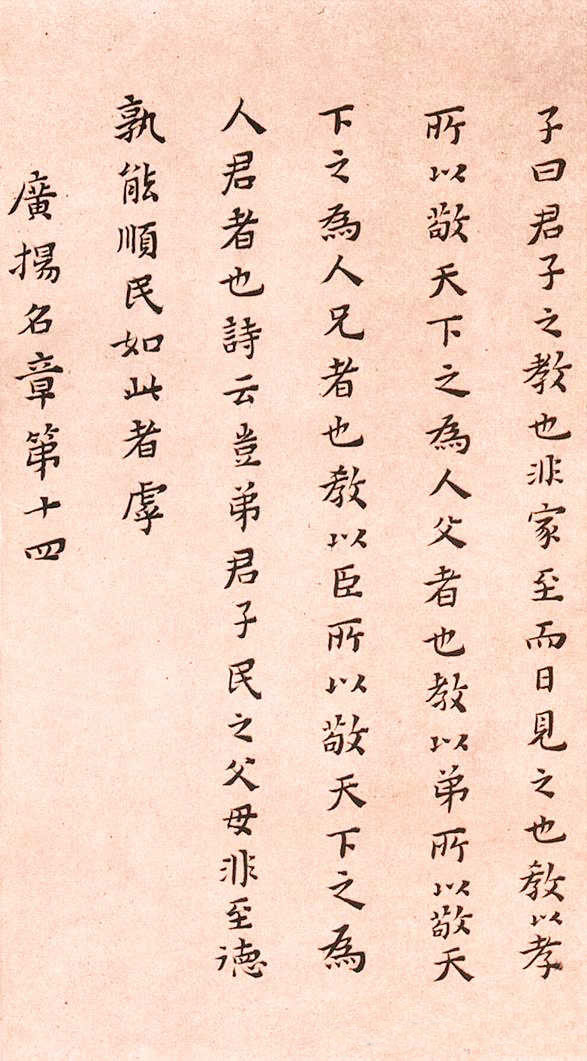 子曰君子之教也非家至而日見之也教以孝
所以敬天下之為人父者也教以弟所以敬天
下之為人兄者也教以臣所以敬天下之為
人君者也詩云豈弟君子民之父母非至德
孰能順民如此者虖
廣揚名章第十四